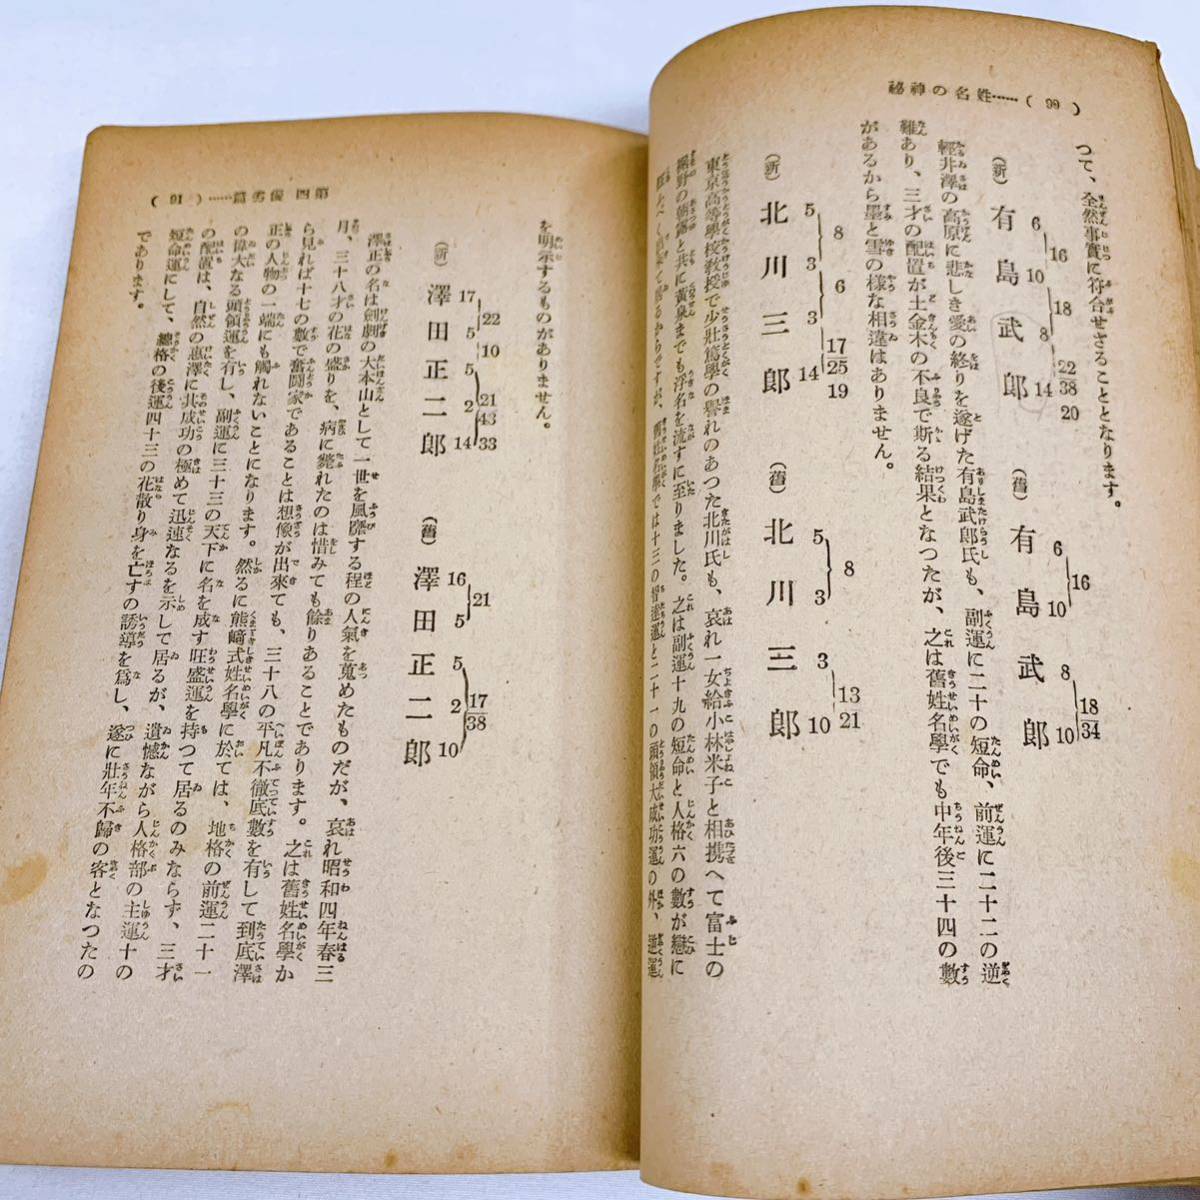 姓名の神秘……( 99 )
つて、全然事實に符合せざることとなります。
(新) 有 6 島 10 武 8 郎 14 16 18 22 38 20
(舊) 有 6 島 10 武 8 郎 10 16 18 34
輕井澤の高原に悲しき愛の終りを遂げた有島武郎氏も、副運に二十の短命、前運に二十二の逆
難あり、三才の配置が土金木の不良で斯る結果となつたが、之は舊姓名學でも中年後三十四の數
があるから墨と雪の樣な相違はありません。
(新) 北 5 川 3 三 3 郎 14 8 6 17 25 19
(舊) 北 5 川 3 三 3 郎 10 8 13 21
東京高等學校教授で少壯篤學の譽れのあつた北川氏も、哀れ一女給小林米子と相携へて富士の
裾野の朝露と共に黃泉までも浮名を流すに至りました。之は副運十九の短命と人格六の數が戀に
舊姓名學では十三の智達運と二十一の頭領大成功運の外、逆運
第四 優劣篇……( 91 )
を明示するものがありません。
(新) 澤 17 田 5 正 5 二 2 郎 14 22 10 21 43 33
(舊) 澤 16 田 5 正 5 二 2 郎 10 21 17 38
澤正の名は劍劇の大本山として一世を風靡する程の人氣を蒐めたものだが、哀れ昭和四年春三
月、三十八才の花の盛りを、病に斃れたのは惜みても餘りあることであります。之は舊姓名學か
ら見れば十七の數で奮鬪家であることは想像が出來ても、三十八の平凡不徹底數を有して到底澤
正の人物の一端にも觸れないことになります。然るに熊﨑式姓名學に於ては、地格の前運二十一
の偉大なる頭領運を有し、副運に三十三の天下に名を成す旺盛運を持つて居るのみならず、三才
の配置は、自然の惠澤に其成功の極めて迅速なるを示して居るが、遺憾ながら人格部の主運十の
短命運にして、總格の後運四十三の花散り身を亡すの誘導を爲し、遂に壯年不歸の客となつたの
であります。